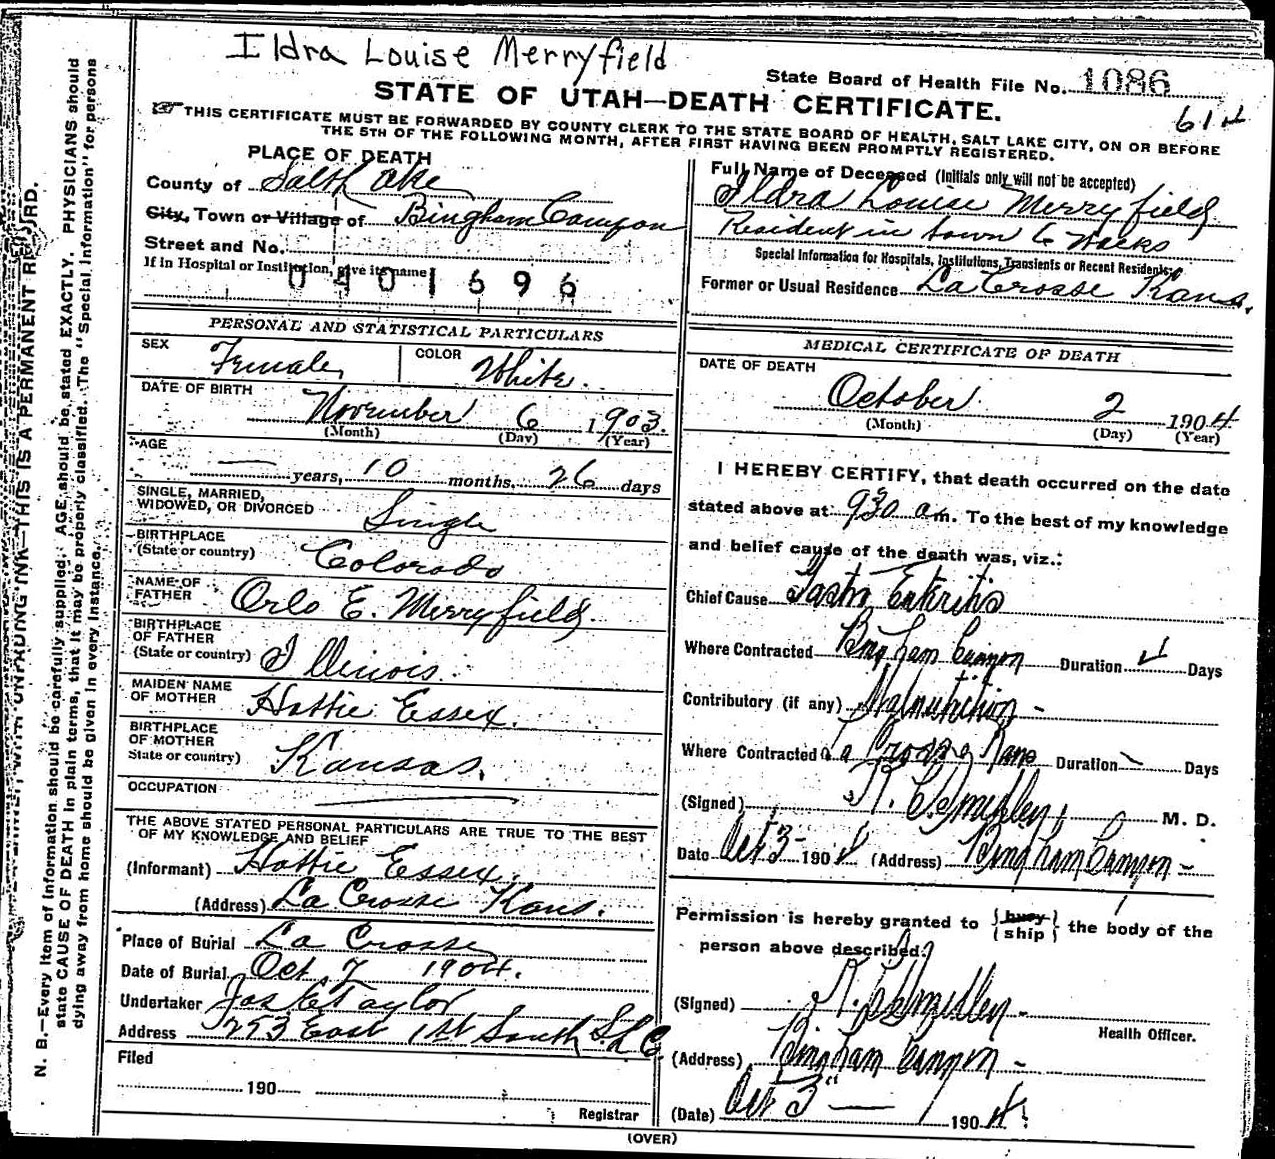 Ildra Louise Merryfield
State Board of Health File No. 1086
STATE OF UTAH—DEATH CERTIFICATE.
THIS CERTIFICATE MUST BE FORWARDED BY COUNTY CLERK TO THE STATE BOARD OF HEALTH, SALT LAKE CITY, ON OR BEFORE
THE 5TH OF THE FOLLOWING MONTH, AFTER FIRST HAVING BEEN PROMPTLY REGISTERED.
PLACE OF DEATH
County of Salt Lake
City, Town or Village of Bingham Canyon
Street and No.
If in Hospital or Institution, give its name
0401696
Full Name of Deceased (Initials only will not be accepted)
Ildra Louise Merryfield
Resident in town 6 Weeks
Special Information for Hospitals, Institutions, Transients or Recent Residents.
Former or Usual Residence La Crosse Kans.
PERSONAL AND STATISTICAL PARTICULARS
SEX Female
COLOR White.
DATE OF BIRTH
November 6 1903.
(Month) (Day) (Year)
AGE
— years, 10 months, 26 days
SINGLE, MARRIED,
WIDOWED, OR DIVORCED Single
BIRTHPLACE
(State or country) Colorado
NAME OF
FATHER Orlo E. Merryfield.
BIRTHPLACE
OF FATHER
(State or country) Illinois.
MAIDEN NAME
OF MOTHER Hattie Essex.
BIRTHPLACE
OF MOTHER
State or country) Kansas.
OCCUPATION
THE ABOVE STATED PERSONAL PARTICULARS ARE TRUE TO THE BEST
OF MY KNOWLEDGE AND BELIEF
(Informant) Hattie Essex.
(Address) La Crosse Kans.
Place of Burial La Crosse
Date of Burial Oct 7 1904.
Undertaker Jos Taylor
Address 253 East 1st South S L C.
Filed
190
Registrar
MEDICAL CERTIFICATE OF DEATH
DATE OF DEATH
October 2 1904
(Month) (Day) (Year)
I HEREBY CERTIFY, that death occurred on the date
stated above at 930 a m. To the best of my knowledge
and belief cause of the death was, viz.:
Chief Cause Gastro Enteritis
Where Contracted Bingham Canyon Duration Days
Contributory (if any) Malnutrition -
Where Contracted La Crosse Kans Duration — Days
(Signed) M. D.
Date Oct 3 - 1904 (Address) Bingham Canyon -
Permission is hereby granted to {bury / ship} the body of the
person above described.
(Signed)
Health Officer.
(Address) Bingham Canyon -
(Date) Oct 3" — 1904.
(OVER)
N. B.—Every item of information should be carefully supplied. AGE should be stated EXACTLY. PHYSICIANS should
state CAUSE OF DEATH in plain terms, that it may be properly classified. The "Special Information" for persons
dying away from home should be given in every instance.
WITH UNFADING INK—THIS IS A PERMANENT RECORD.